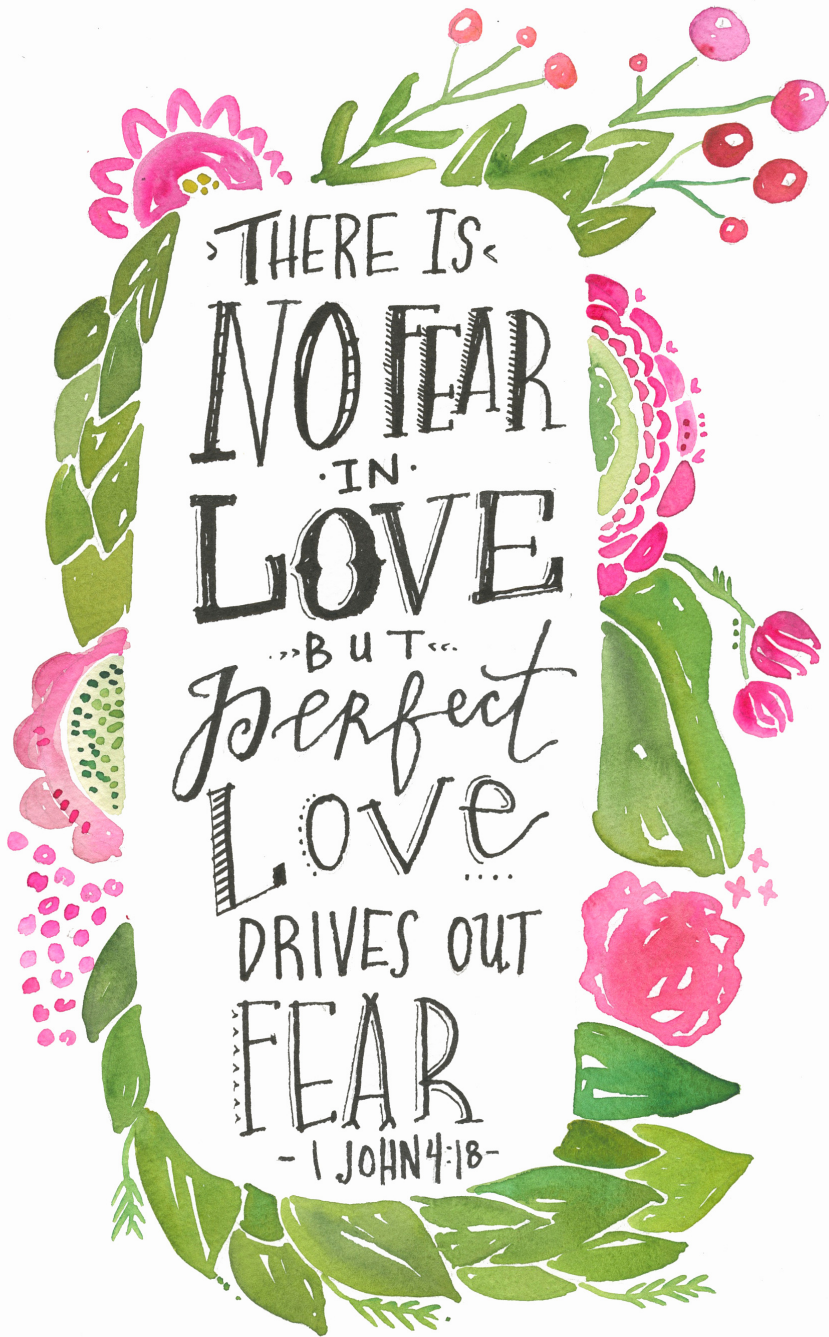 THERE IS
NO FEAR
IN
LOVE
BUT
perfect
Love
DRIVES OUT
FEAR
- 1 JOHN 4:18 -